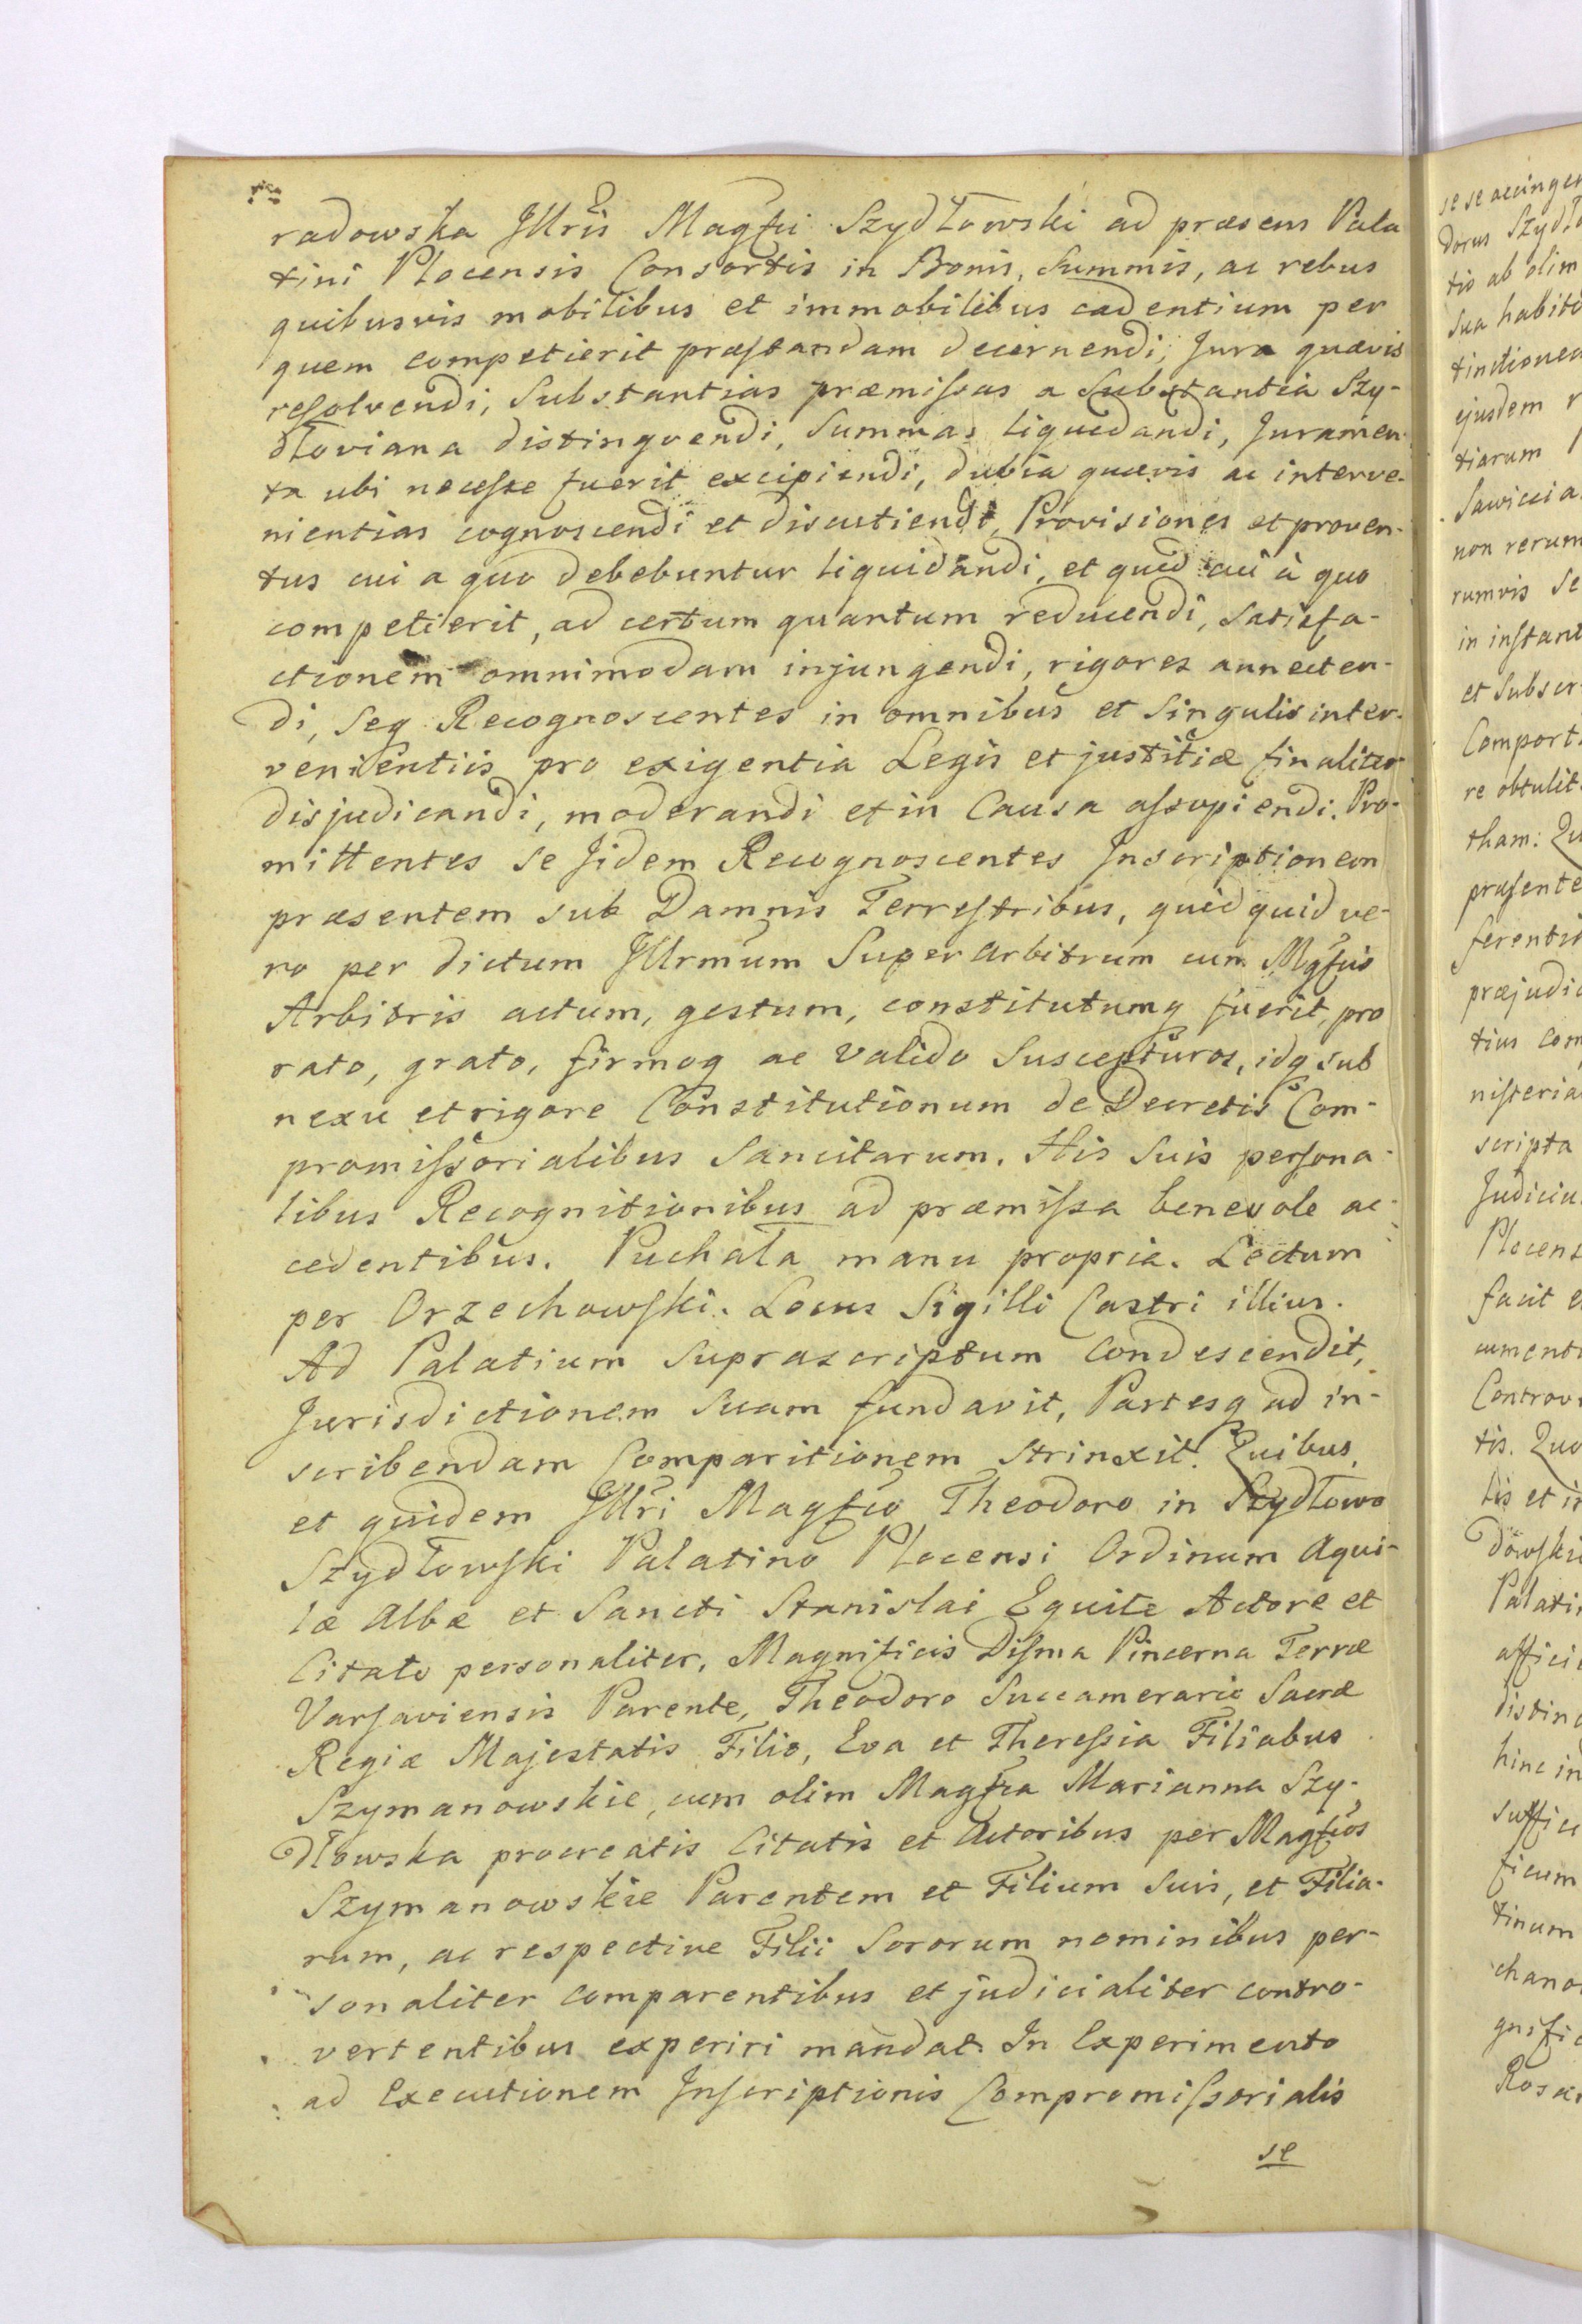 radowska Jllris Magfci Szydłowski ad præsens Pala
tini Plocensis Consortis in Bonis, Summis, ac rebus
quibusvis mobilibus et immobilibus cadentium per
quem competierit præstandam decernendi, Jura quævis
resolvendi, Substantias præmissas a Substantia Szy-
dłoviana distingvendi, Summas liquidandi, Juramen-
ta ubi necesse fuerit excipiendi, dubia quævis ac interve-
nientias cognoscendi et discutiendi, Provisiones et proven-
tus cui a quo debebuntur liquidandi, et quid cui à quo
competierit, ad certum quantum reducendi, Satisfa-
ctionem omnimodam injungendi, rigores annecten-
di, Seq Recognoscentes in omnibus et Singulis inter-
venientiis pro exigentia Legis et justitiæ finaliter
disjudicandi, moderandi et in Causa assopiendi. Pro-
mittentes se Jidem Recognoscentes Jnscriptionem
præsentem sub Damnis Terrestribus, quidquid ve-
ro per dictum Jllrmum Superarbitrum cum Mgfcis
Arbitris actum, gestum, constitutumq fuerit, pro
rato, grato, firmoq ac valido Suscepturos, idq sub
nexu et rigore Constitutionum de Decretis Com-
promissorialibus Sancitarum. His Suis persona-
libus Recognitionibus ad præmissa benevole ac-
cedentibus. Puchała manu propria. Lectum
per Orzechowski. Locus Sigilli Castri illius.
Ad Palatium Suprascriptum Condescendit,
Jurisdictionem Suam fundavit, Partesq ad in-
scribendam Comparitionem Strinxit. Quibus,
et quidem Jllri Magfco Theodoro in Szydłowo
Szydłowski Palatino Plocensi Ordinum Aqui-
læ Albæ et Sancti Stanislai Equite Actore et
Citato personaliter, Magnificis Disma Pincerna Terræ
Varsaviensis Parente, Theodoro Succamerario Sacræ
Regiæ Majestatis Filio, Eva et Theressia Filiabus
Szymanowskie, cum olim Magfca Marianna Szy-
dłowska procreatis Citatis et Actoribus per Magfcos
Szymanowskie Parentem et Filium Suis, et Filia-
rum, ac respective Filii Sororum nominibus per-
sonaliter comparentibus et judicialiter contro-
vertentibus experiri mandat. In Experimento
ad Executionem Jnscriptionis Compromissorialis
se
se se accinger
dorus Szydł
tio ab olim
sua habito
tinctionem
ejusdem
tiarum
Sawiccia
non rerum
rumvis Se
in instant
et Subscr
Comport
re obtulit.
tham: Qu
præsente
ferentis
præjudic
tius Com
nisteria
scripta
Judiciu
Plocens
facit e
cumenti
Controv
tis. Quo
lis et in
dowskie
Palatin
afficie
disting
hinc in
suffici
ficum
tinum
chano
gnific
Rosæ